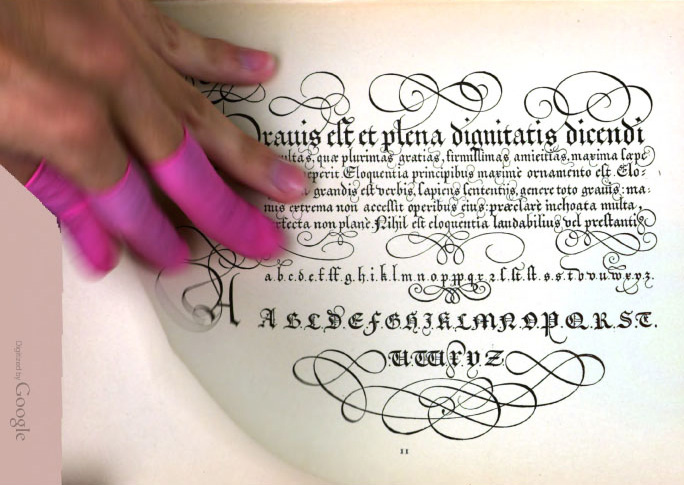 Grauis est et plena dignitatis dicendi
multas, quæ plurimas gratias, firmissimas amicitias, maxima sæpe
peperit Eloquentia principibus maximè ornamento est. Elo-
grandis est verbis, sapiens sententijs, genere toto grauis: ma-
nus extrema non accessit operibus eius: præclarè inchoata multa,
perfecta non planè. Nihil est eloquentia laudabilius vel prestantius
a.b.c.d.e.f.ff.g.h.i.k.l.m.n.o.p.pp.q.r.z.ſ.ſt.st.s.s.t.v.v.u.w.x.y.z.
A
A B C D E F G H I K L M N O P Q. R. S. T.
U W X Y Z
11
Digitized by Google